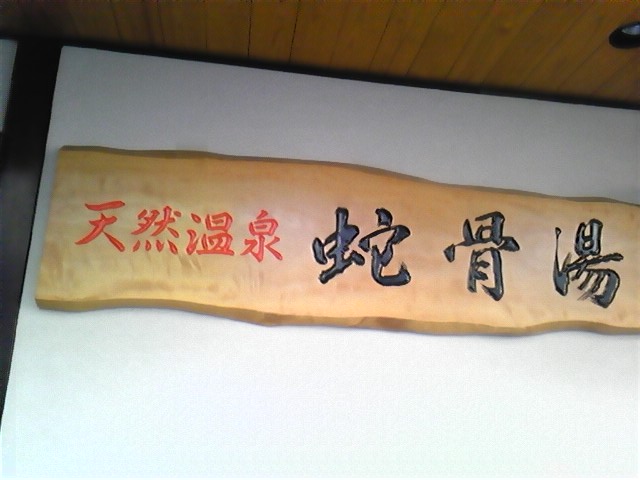 天然温泉 蛇骨湯